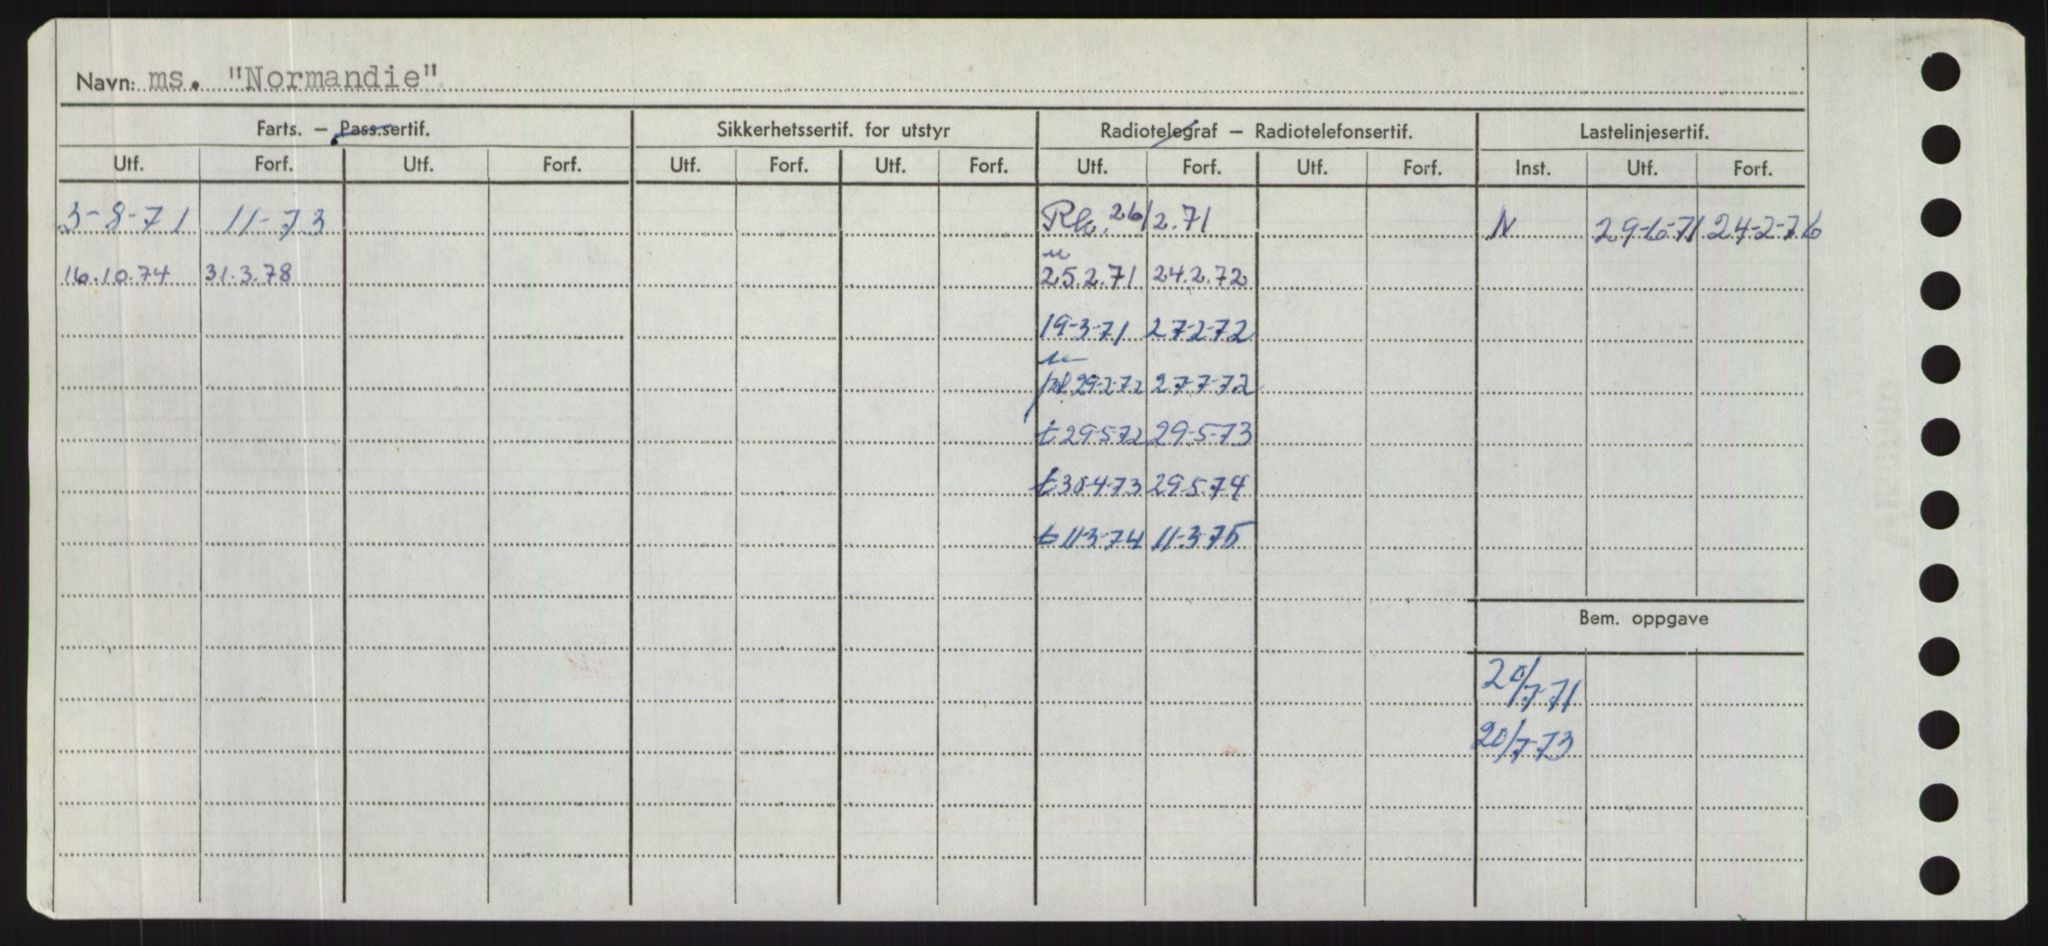 Navn: ms. "Normandie"
Farts. – Pass.sertif. Sikkerhetssertif. for utstyr Radiotelegraf – Radiotelefonsertif. Lastelinjesertif.
Utf. Forf. Utf. Forf. Utf. Forf. Utf. Forf. Utf. Forf. Utf. Forf. Inst. Utf. Forf.
3-8-71 11-73 26/2.71 N 29-6-71 24-2-76
16.10.74 31.3.78 25.2.71 24.2.72
19-3-71 27-2-72
29-2-72 27-7-72
t 29-5-72 29-5-73
t 30-4-73 29-5-74
t 11-3-74 11-3-75
Bem. oppgave
20/7-71
20/7-73